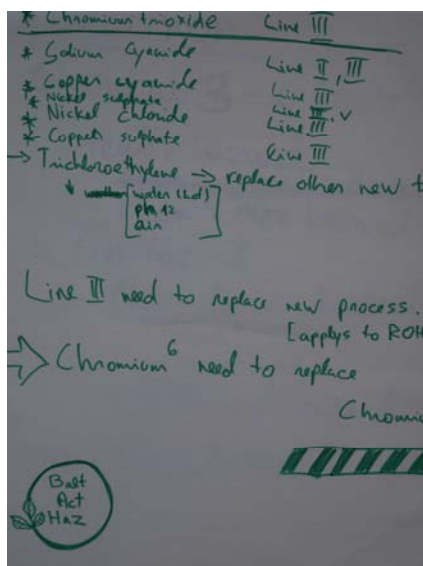 * Chromium trioxide Line III
* Sodium Cyanide Line II, III
* Copper cyanide Line III
* Nickel sulphate Line III, V
* Nickel chloride Line III
* Copper sulphate Line III
→ Trichloroethylene → replace other new t
[water (hot)
ph 12
air]
Line III need to replace new process.
[applys to ROH
⇒ Chromium 6 need to replace
Chromiu
Balt
Act
Haz